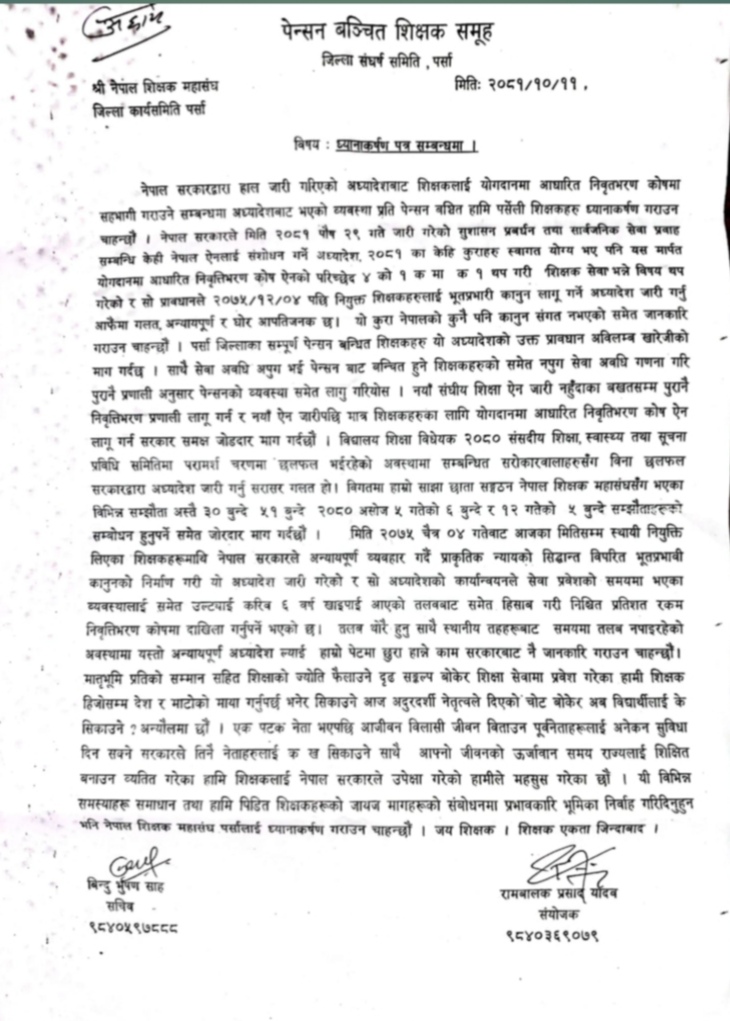 पेन्सन बञ्चित शिक्षक समूह
जिल्ला संघर्ष समिति , पर्सा
श्री नेपाल शिक्षक महासंघ
मितिः २०८१/१०/११ .
जिल्ला कार्यसमिति पर्सा
विषय : ध्यानाकर्षण पत्र सम्बन्धमा ।
नेपाल सरकारद्वारा हाल जारी गरिएको अध्यादेशबाट शिक्षकलाई योगदानमा आधारित निवृतभरण कोषमा
सहभागी गराउने सम्बन्धमा अध्यादेशबाट भएको व्यवस्था प्रति पेन्सन बञ्चित हामि पर्सेली शिक्षकहरु ध्यानाकर्षण गराउन
चाहन्छौं । नेपाल सरकारले मिति २०८१ पौष २९ गते जारी गरेको सुशासन प्रबर्धन तथा सार्वजनिक सेवा प्रवाह
सम्बन्धि केही नेपाल ऐनलाई संशोधन गर्ने अध्यादेश, २०८१ का केहि कुराहरु स्वागत योग्य भए पनि यस मार्पत
योगदानमा आधारित निवृत्तिभरण कोष ऐनको परिच्छेद ४ को १ क मा क १ थप गरी शिक्षक सेवा भन्ने विषय थप
गरेको र सो प्रावधानले २०७५/१२/०४ पछि नियुक्त शिक्षकहरुलाई भूतप्रभारी कानुन लागू गर्ने अध्यादेश जारी गर्नु
आफैमा गलत, अन्यायपूर्ण र घोर आपतिजनक छ। यो कुरा नेपालको कुनै पनि कानुन संगत नभएको समेत जानकारि
गराउन चाहन्छौं । पर्सा जिल्लाका सम्पूर्ण पेन्सन बन्चित शिक्षकहरु यो अध्यादेशको उक्त प्रावधान अविलम्ब खारेजीको
माग गर्दछ । साथै सेवा अवधि अपुग भई पेन्सन बाट बन्चित हुने शिक्षकहरुको समेत नपुग सेवा अवधि गणना गरि
पुरानै प्रणाली अनुसार पेन्सनको व्यवस्था समेत लागु गरियोस । नयाँ संघीय शिक्षा ऐन जारी नहुँदाका बखतसम्म पुरानै
निवृत्तिभरण प्रणाली लागू गर्न र नयाँ ऐन जारीपछि मात्र शिक्षकहरुका लागि योगदानमा आधारित निवृतिभरण कोष ऐन
लागू गर्न सरकार समक्ष जोडदार माग गर्दछौं । विद्यालय शिक्षा विधेयक २०८० संसदीय शिक्षा, स्वास्थ्य तथा सूचना
प्रविधि समितिमा परामर्श चरणमा छलफल भईरहेको अवस्थामा सम्बन्धित सरोकारवालाहरुसँग विना छलफल
सरकारद्वारा अध्यादेश जारी गर्नु सरासर गलत हो। विगतमा हाम्रो साझा छाता सङ्गठन नेपाल शिक्षक महासंघसँग भएका
विभिन्न सम्झौता अस्तै ३० बुन्दे ५१ बुन्दे २०८० असोज ५ गतेको ६ बुन्दे र १२ गतेको ५ बुन्दे सम्झौताहरुको
सम्बोधन हुनुपर्ने समेत जोरदार माग गर्दछौं । मिति २०७५ चैत्र ०४ गतेबाट आजका मितिसम्म स्थायी नियुक्ति
लिएका शिक्षकहरूमाथि नेपाल सरकारले अन्यायपूर्ण व्यवहार गर्दै प्राकृतिक न्यायको सिद्धान्त विपरित भूतप्रभावी
कानुनको निर्माण गरी यो अध्यादेश जारी गरेको र सो अध्यादेशको कार्यान्वयनले सेवा प्रवेशको समयमा भएका
व्यवस्थालाई समेत उल्टयाई करिब ६ वर्ष खाइपाई आएको तलवबाट समेत हिसाब गरी निश्चित प्रतिशत रकम
निवृत्तिभरण कोषमा दाखिला गर्नुपर्ने भएको छ। तलब थोरै हुनु साथै स्थानीय तहहरूबाट समयमा तलब नपाइरहेको
अवस्थामा यस्तो अन्यायपूर्ण अध्यादेश ल्याई हाम्रो पेटमा छुरा हान्ने काम सरकारबाट नै जानकारि गराउन चाहन्छौं।
मातृभूमि प्रतिको सम्मान सहित शिक्षाको ज्योति फैलाउने दृढ सङ्कल्प बोकेर शिक्षा सेवामा प्रवेश गरेका हामी शिक्षक
हिजोसम्म देश र माटोको माया गर्नुपर्छ भनेर सिकाउने आज अदुरदर्शी नेतृत्वले दिएको चोट बोकेर अब विद्यार्थीलाई के
सिकाउने ? अन्यौलमा छौं । एक पटक नेता भएपछि आजीवन विलासी जीवन बिताउन पूर्वनेताहरूलाई अनेकन सुविधा
दिन सक्ने सरकारले तिनै नेताहरुलाई क ख सिकाउने साथै आपनो जीवनको ऊर्जावान समय राज्यलाई शिक्षित
बनाउन व्यतित गरेका हामि शिक्षकलाई नेपाल सरकारले उपेक्षा गरेको हामीले महसुस गरेका छौं । यी विभिन्न
समस्याहरू समाधान तथा हामि पिडित शिक्षकहरूको जायज मागहरूको संबोधनमा प्रभावकारि भूमिका निर्वाह गरिदिनुहुन
भनि नेपाल शिक्षक महासंघ पर्सालाई ध्यानाकर्षण गराउन चाहन्छौं । जय शिक्षक । शिक्षक एकता जिन्दाबाद ।
बिन्दु भुषण साह
सचिव
९८४०५९७८८८
रामबालक प्रसाद यादव
संयोजक
९८४०३६९०७९